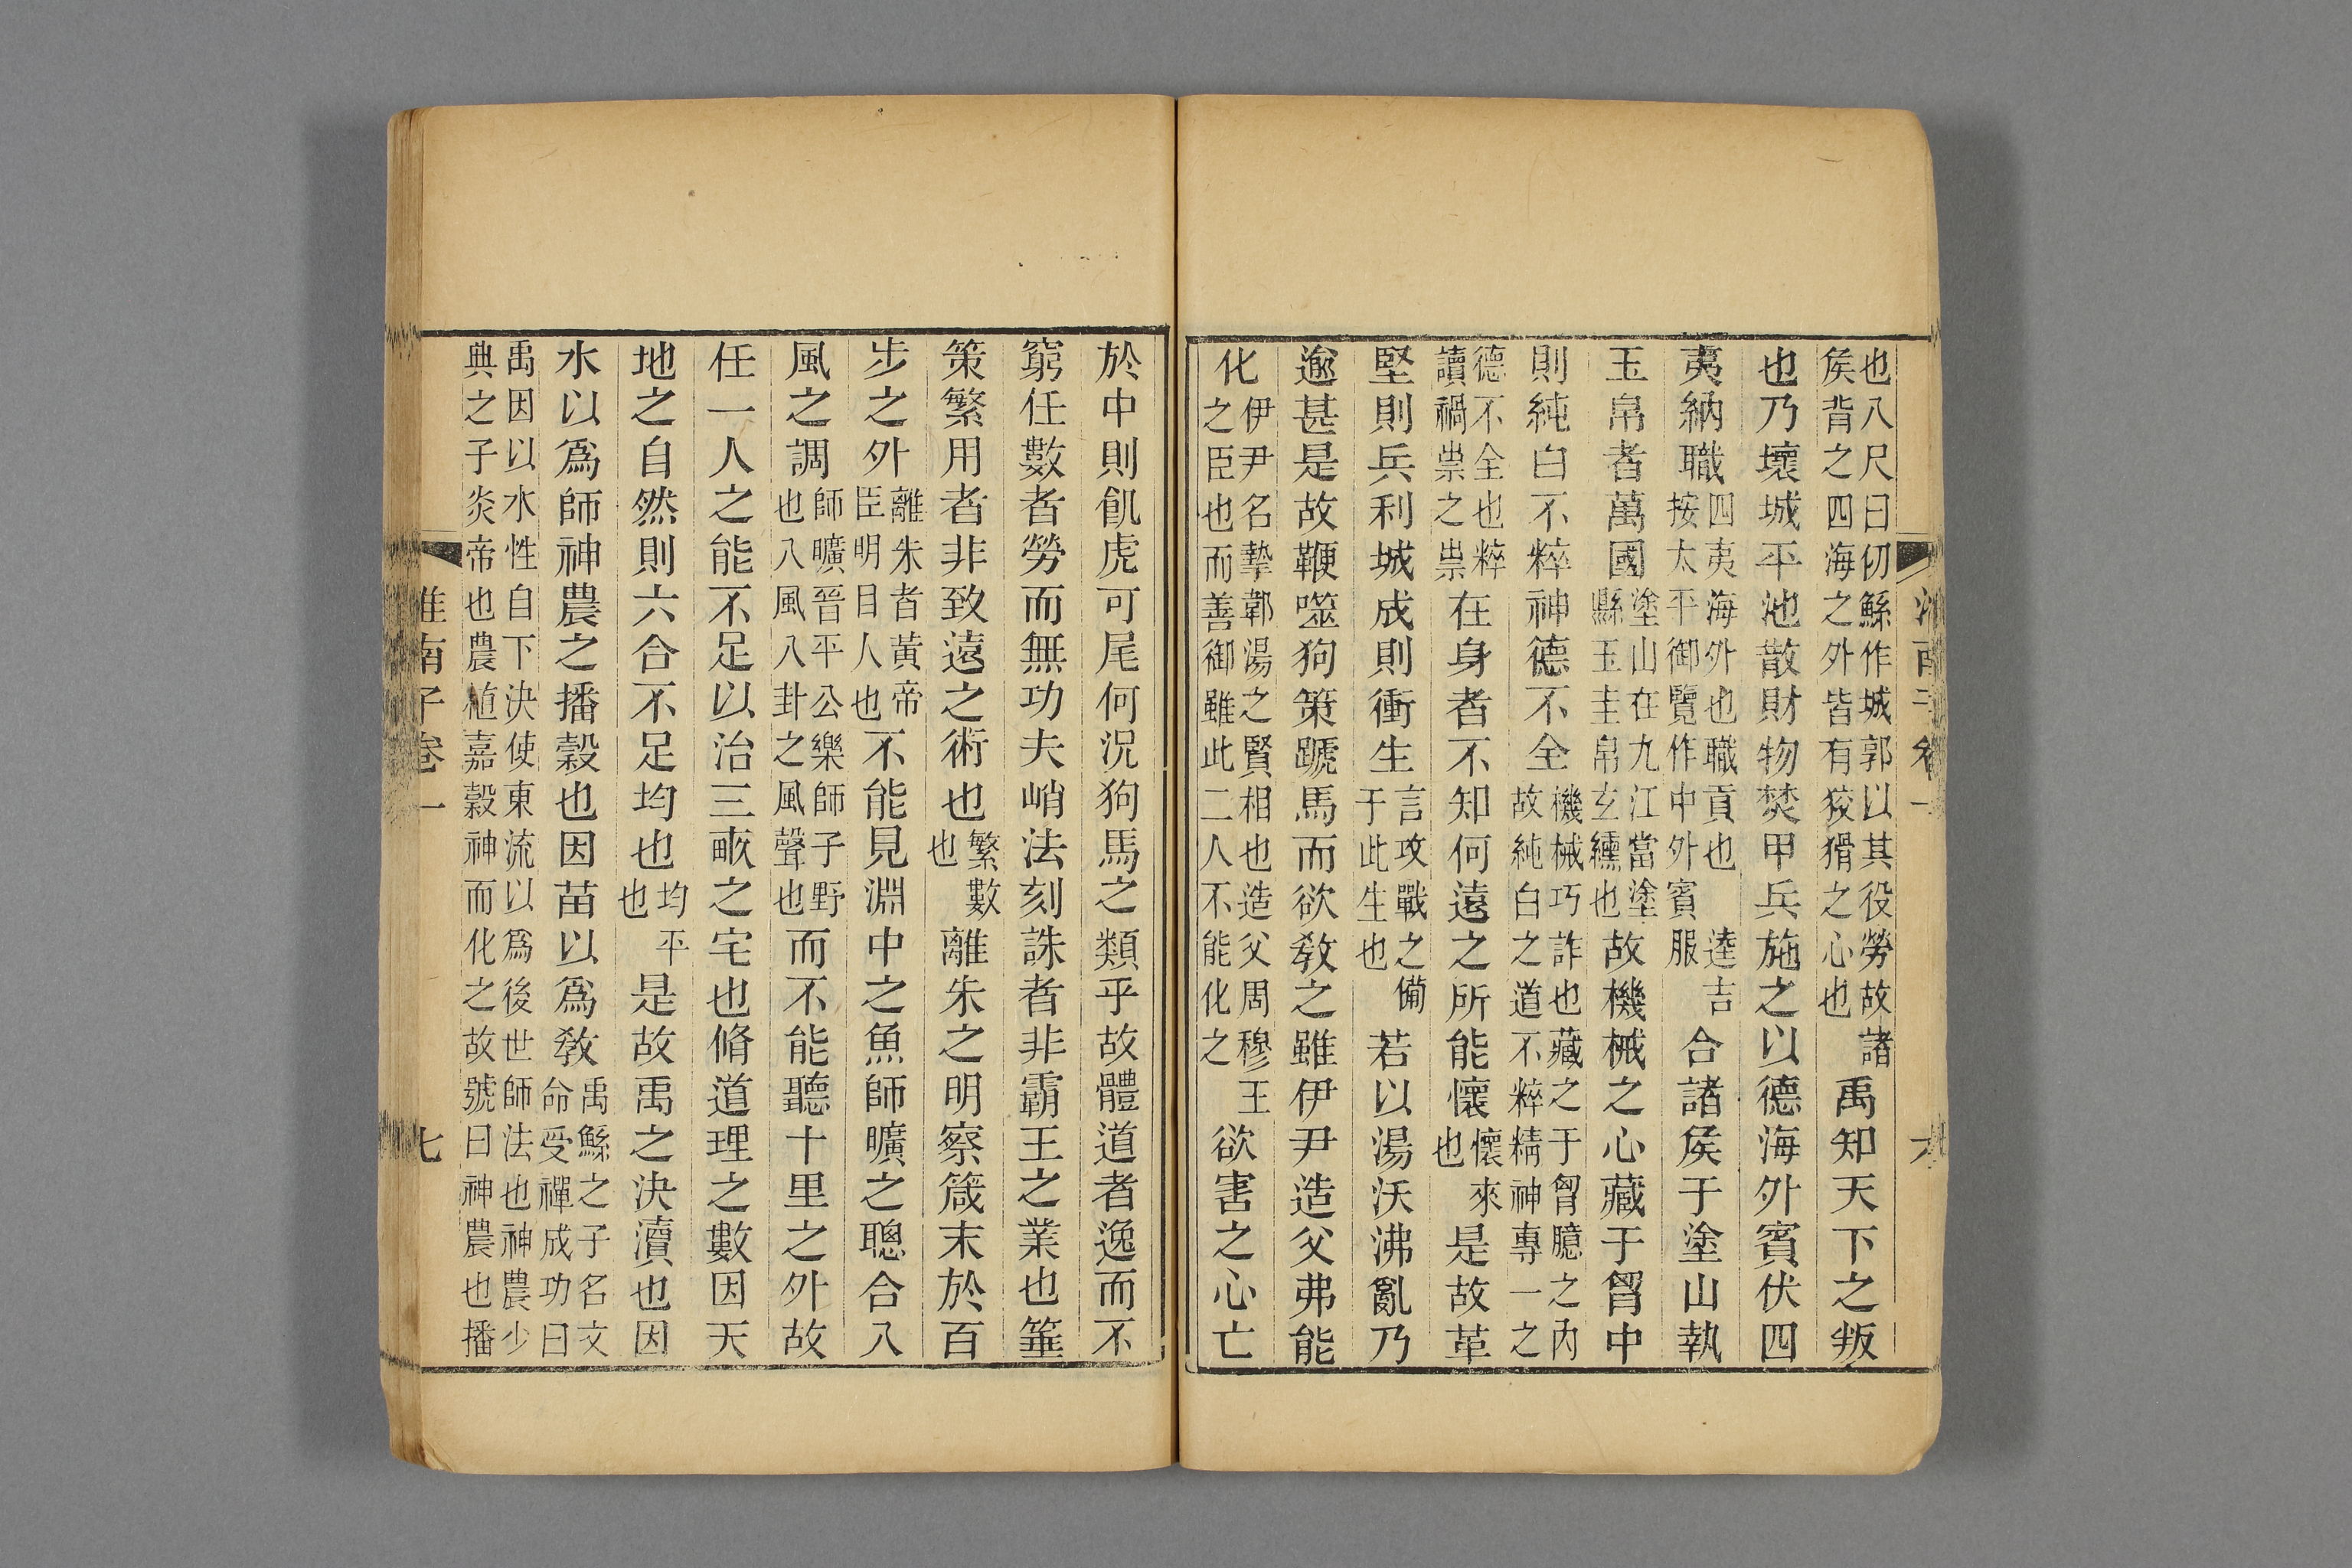 也八尺曰仞鯀作城郭以其役勞故諸
矦背之四海之外皆有狡猾之心也
禹知天下之叛
也乃壞城平池散財物焚甲兵施之以德海外賓伏四
夷納職
四夷海外也職貢也 逵吉
按太平御覽作中外賓服
合諸矦于塗山執
玉帛者萬國
塗山在九江當塗
縣玉圭帛玄纁也
故機械之心藏于胷中
則純白不粹神德不全
機械巧詐也藏之于胷臆之內
故純白之道不粹精神專一之
德不全也粹
讀禍祟之祟
在身者不知何遠之所能懷
懷來
也
是故革
堅則兵利城成則衝生
言攻戰之備
于此生也
若以湯沃沸亂乃
逾甚是故鞭噬狗策蹏馬而欲教之雖伊尹造父弗能
化
伊尹名摯鄣湯之賢相也造父周穆王
之臣也而善御雖此二人不能化之
欲害之心亡
於中則飢虎可尾何況狗馬之類乎故體道者逸而不
窮任數者勞而無功夫峭法刻誅者非霸王之業也箠
策繁用者非致遠之術也
繁數
也
離朱之明察箴末於百
步之外
離朱者黃帝
臣明目人也
不能見淵中之魚師曠之聰合八
風之調
師曠晉平公樂師子野
也八風八卦之風聲也
而不能聽十里之外故
任一人之能不足以治三畝之宅也脩道理之數因天
地之自然則六合不足均也
均平
也
是故禹之決瀆也因
水以爲師神農之播穀也因苗以爲教
禹鯀之子名文
命受禪成功曰
禹因以水性自下決使東流以爲後世師法也神農少
典之子炎帝也農植嘉穀神而化之故號曰神農也播
淮南子卷一
七